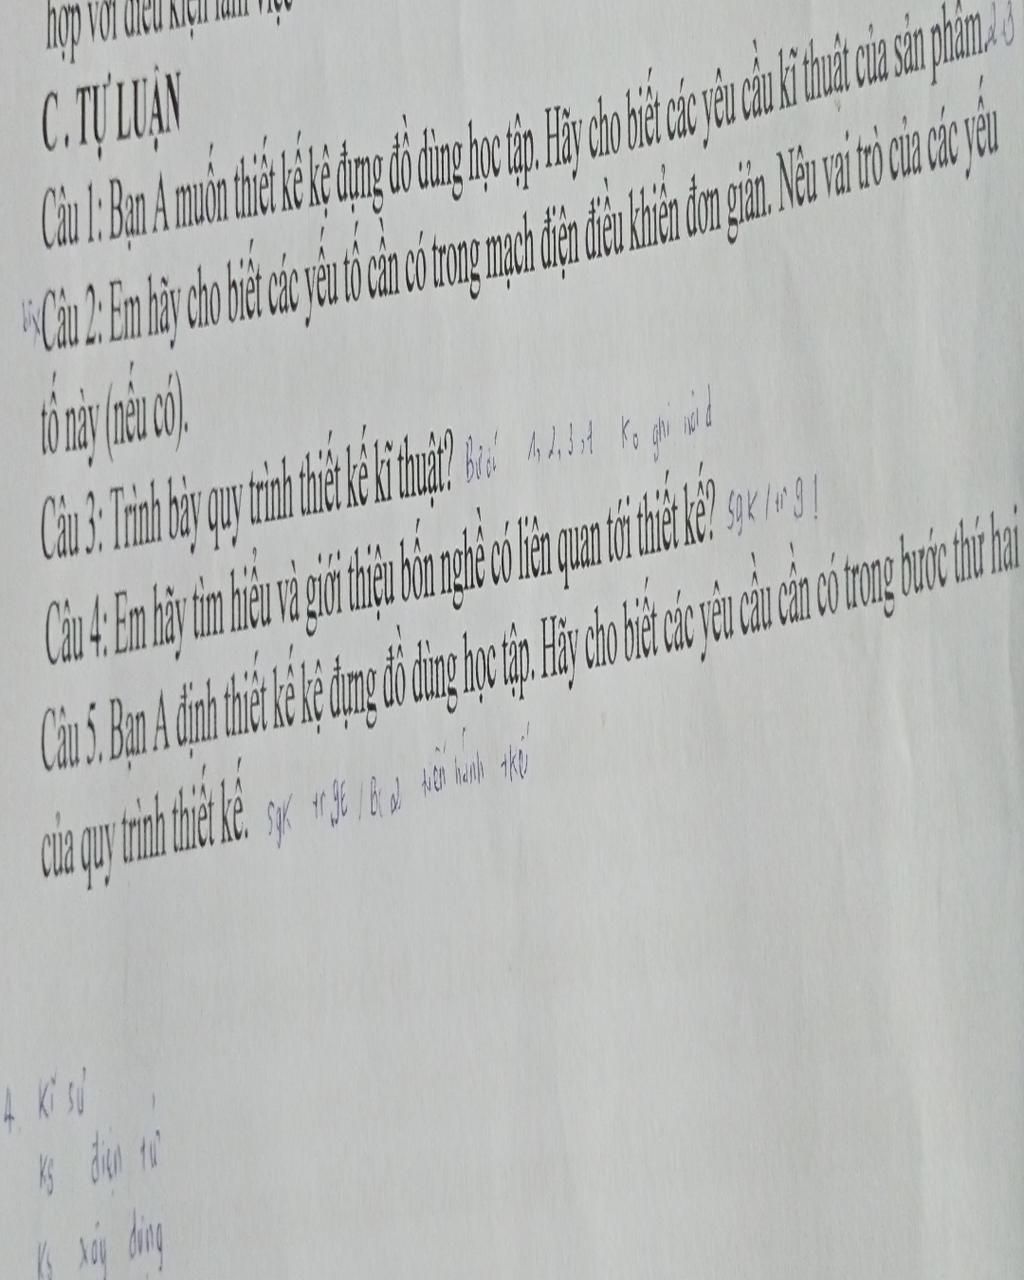 hợp với điều kiện làm việc
C. TỰ LUẬN
Câu 1: Bạn A muốn thiết kế kệ đựng đồ dùng học tập. Hãy cho biết các yêu cầu kĩ thuật của sản phẩm.
Câu 2: Em hãy cho biết các yếu tố cần có trong mạch điện điều khiển đơn giản. Nêu vai trò của các yếu
tố này (nếu có).
Câu 3: Trình bày quy trình thiết kế kĩ thuật? Bước 1, 2, 3, 4 Ko ghi nội d
Câu 4: Em hãy tìm hiểu và giới thiệu bốn nghề có liên quan tới thiết kế? Sgk / tr 91
Câu 5. Bạn A định thiết kế kệ đựng đồ dùng học tập. Hãy cho biết các yêu cầu cần có trong bước thứ hai
của quy trình thiết kế. sgk tr tiến hành tkế
4. Kĩ sư
Ks điện tử
Ks xây dựng